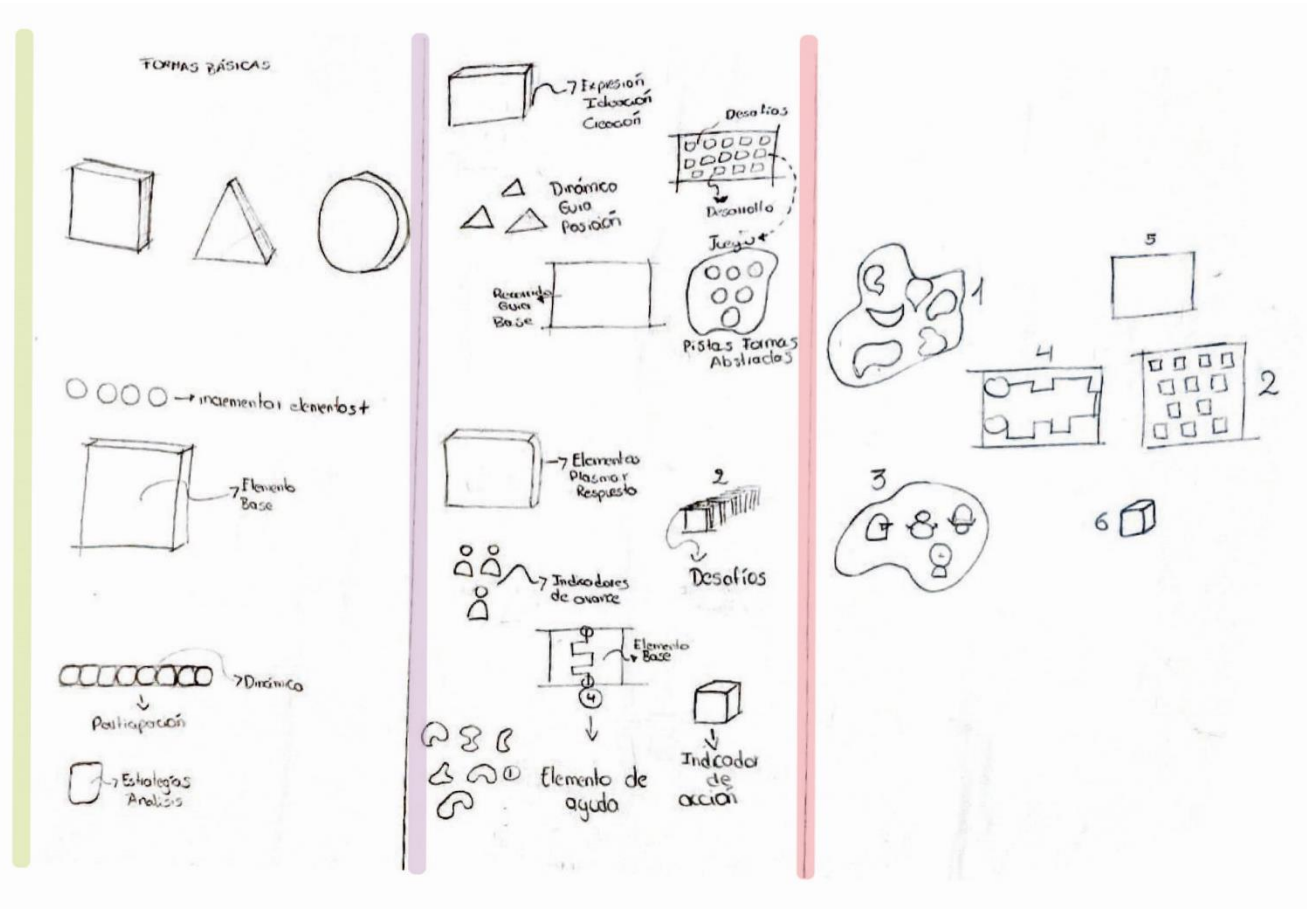 FORMAS BÁSICAS
→ incrementar elementos +
Elemento
Base
Dinámica
Participación
Estrategias
Análisis
Expresión
Ideación
Creación
Desafíos
Desarrollo
Dinámico
Guia
Posición
Juego
Guia
Base
Pistas Formas
Abstractas
Elementos
Plasmar
Respuesta
2
Desafíos
Indicadores
de avance
Elemento
Base
4
1
Elemento de
ayuda
Indicador
de
acción
1
5
4
2
3
6